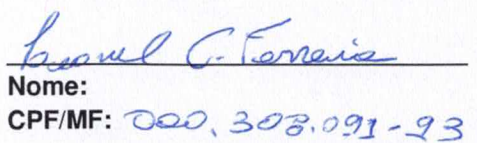 Leonel C. Ferreira
Nome:
CPF/MF: 000.303.091-93